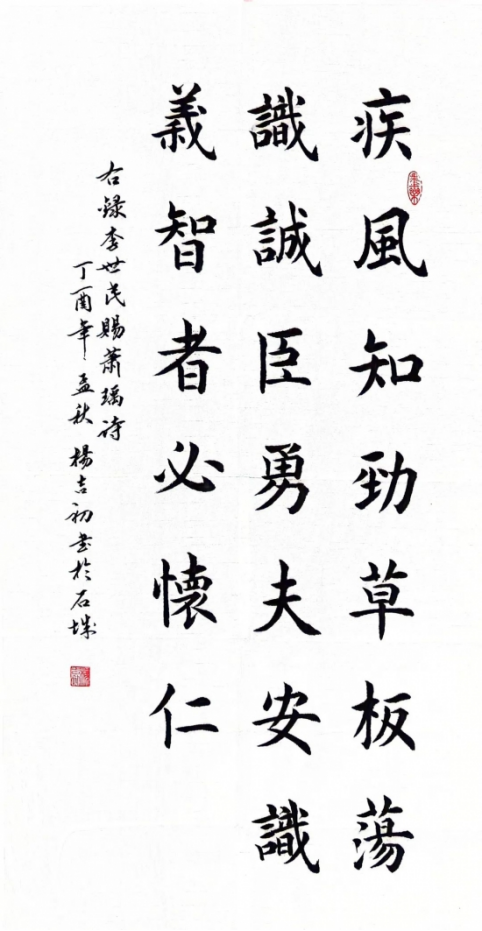 疾風知勁草板蕩
識誠臣勇夫安識
義智者必懷仁
右錄李世民賜蕭瑀诗
丁酉年孟秋楊吉初书於石城